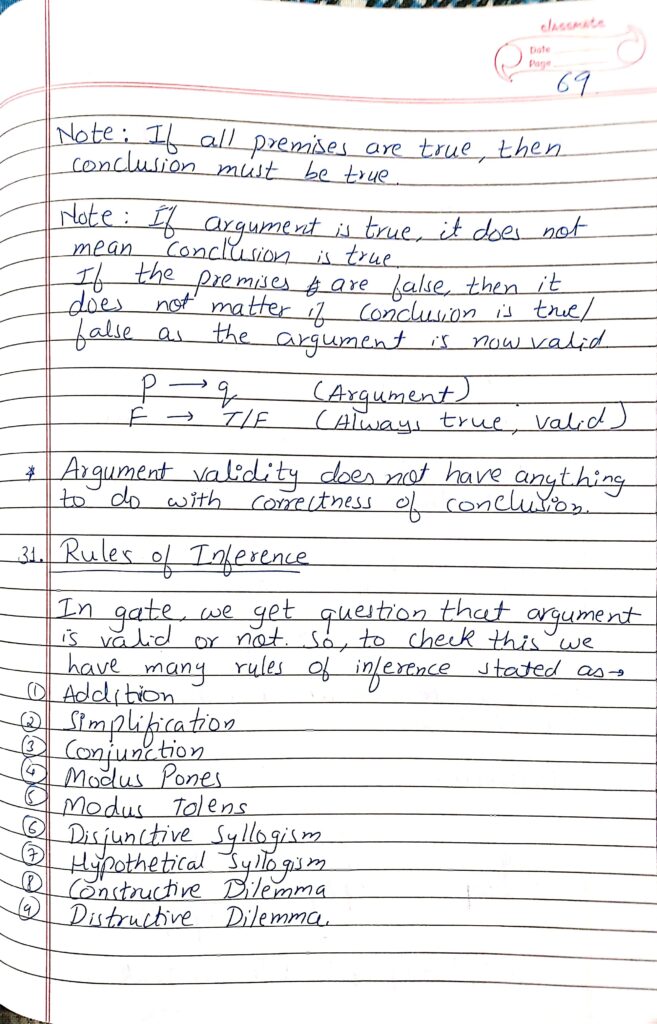 classmate
Date
Page
69
Note: If all premises are true, then
conclusion must be true.
Note: If argument is true, it does not
mean conclusion is true
If the premises are false, then it
does not matter if conclusion is true/
false as the argument is now valid
P → q (Argument)
F → T/F (Always true, valid)
* Argument validity does not have anything
to do with correctness of conclusion.
31. Rules of Inference
In gate, we get question that argument
is valid or not. So, to check this we
have many rules of inference stated as →
① Addition
② Simplification
③ Conjunction
④ Modus Pones
⑤ Modus Tolens
⑥ Disjunctive Syllogism
⑦ Hypothetical Syllogism
⑧ Constructive Dilemma
⑨ Distructive Dilemma.